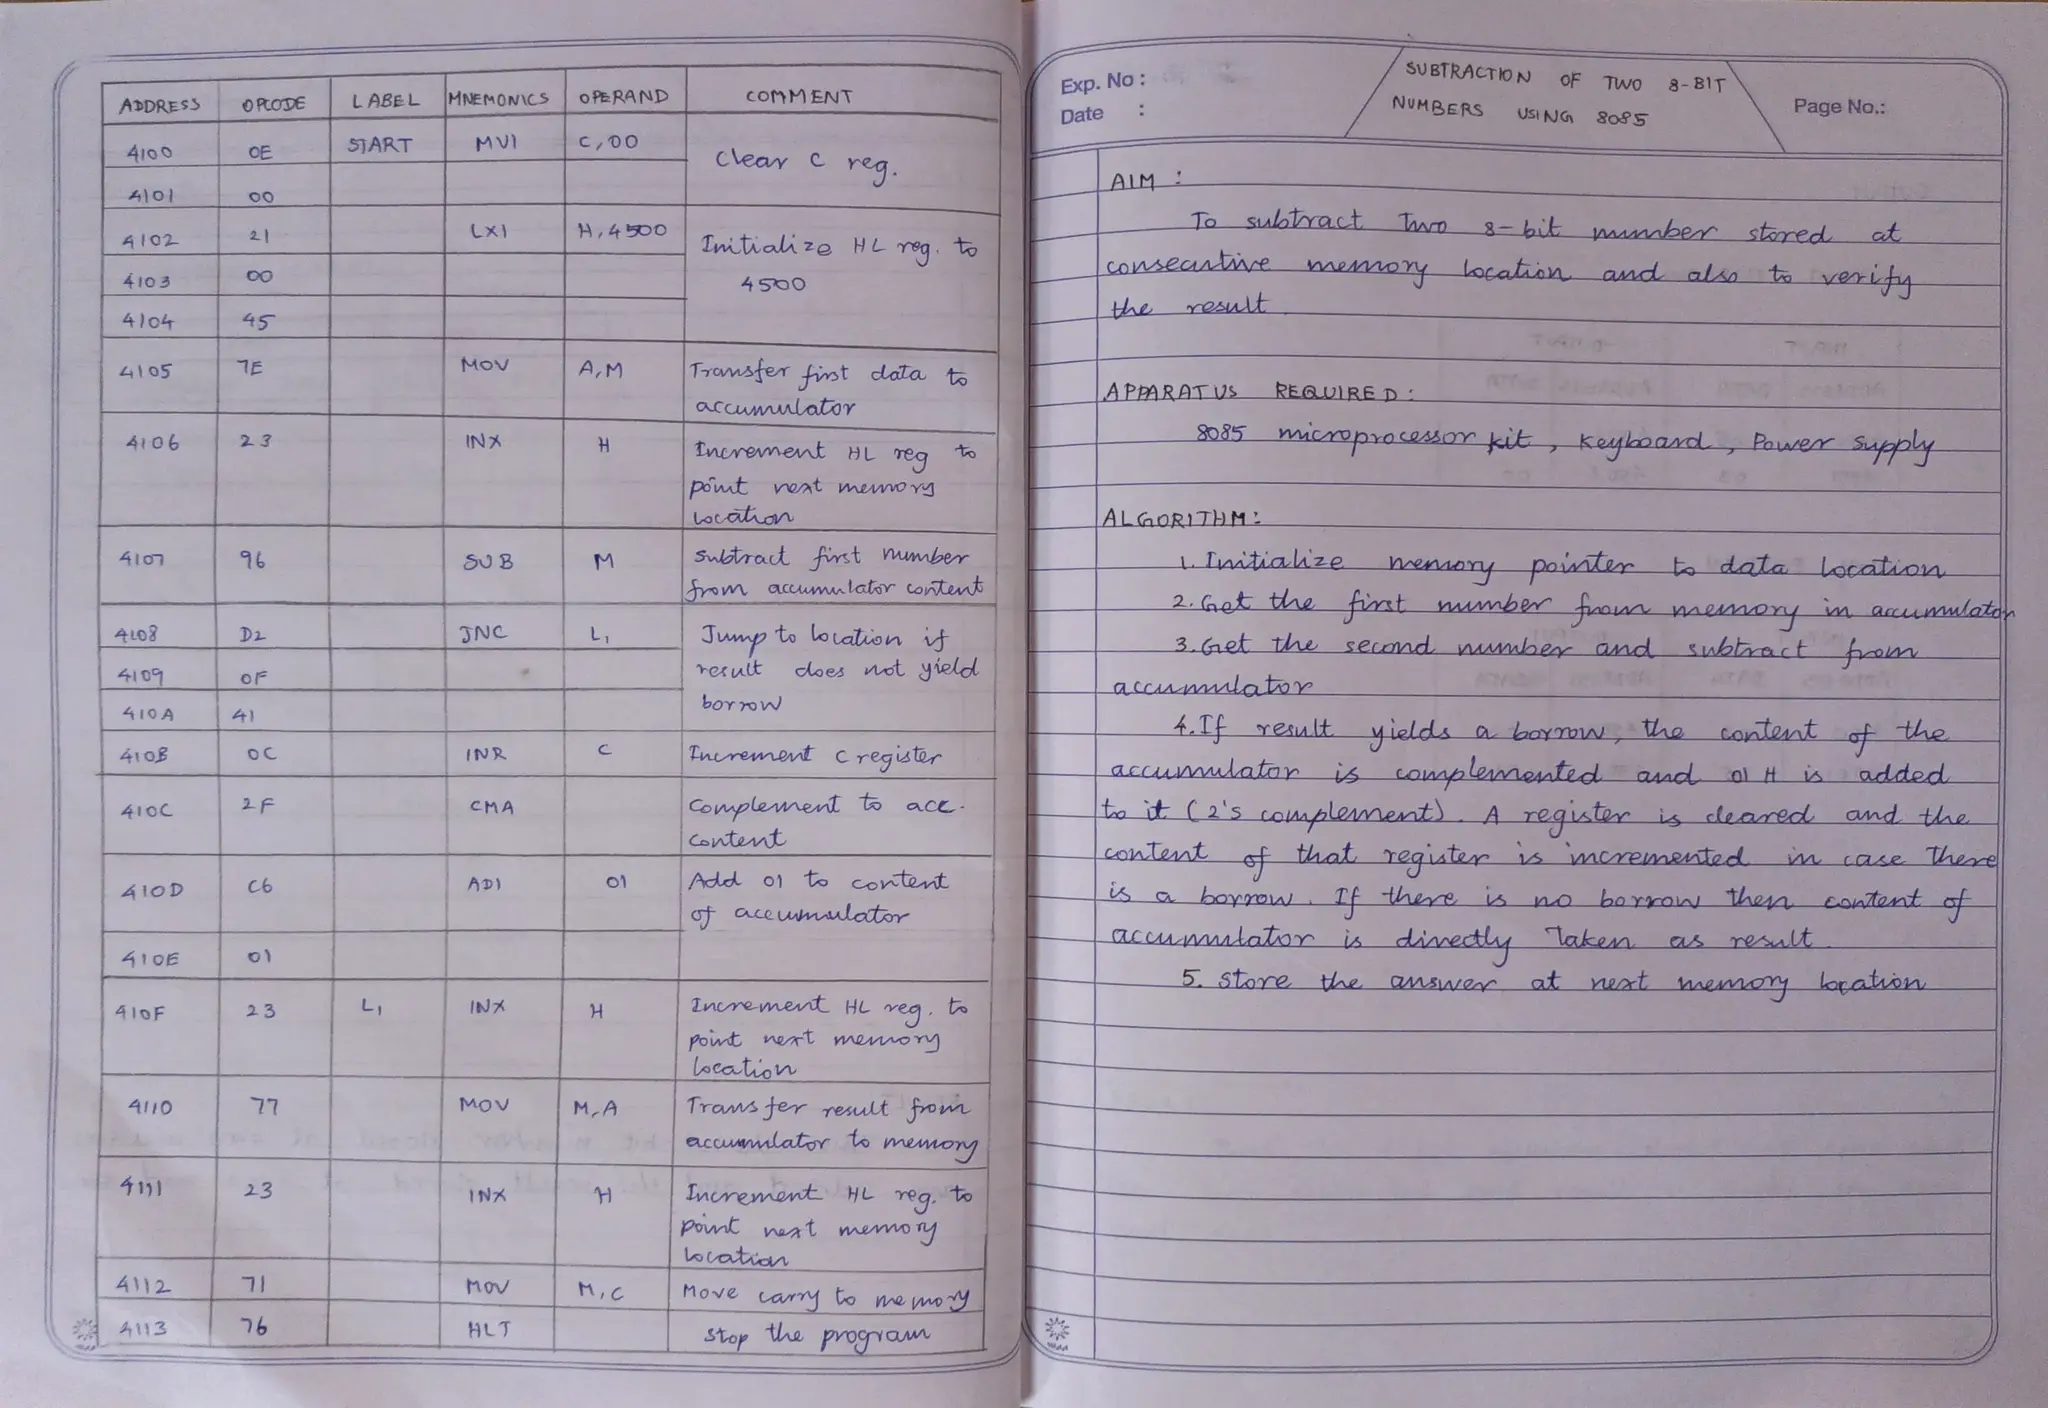 ADDRESS OPCODE LABEL MNEMONICS OPERAND COMMENT
4100 0E START MVI C,00 Clear C reg.
4101 00
4102 21 LXI H,4500 Initialize HL reg. to
4103 00 4500
4104 45
4105 7E MOV A,M Transfer first data to
accumulator
4106 23 INX H Increment HL reg to
point next memory
location
4107 96 SUB M Subtract first number
from accumulator content
4108 D2 JNC L1 Jump to location if
4109 0F result does not yield
410A 41 borrow
410B 0C INR C Increment C register
410C 2F CMA Complement to acc.
Content
410D C6 ADI 01 Add 01 to content
of accumulator
410E 01
410F 23 L1 INX H Increment HL reg. to
point next memory
location
4110 77 MOV M,A Transfer result from
accumulator to memory
4111 23 INX H Increment HL reg. to
point next memory
location
4112 71 MOV M,C Move carry to memory
4113 76 HLT Stop the program
Exp. No :
Date :
SUBTRACTION OF TWO 8-BIT
NUMBERS USING 8085
Page No.:
AIM :
To subtract two 8-bit number stored at
consecutive memory location and also to verify
the result
APPARATUS REQUIRED :
8085 microprocessor kit , Keyboard , Power Supply
ALGORITHM:
1. Initialize memory pointer to data location
2. Get the first number from memory in accumulator
3. Get the second number and subtract from
accumulator
4. If result yields a borrow, the content of the
accumulator is complemented and 01 H is added
to it (2's complement). A register is cleared and the
content of that register is incremented in case there
is a borrow. If there is no borrow then content of
accumulator is directly taken as result.
5. Store the answer at next memory location